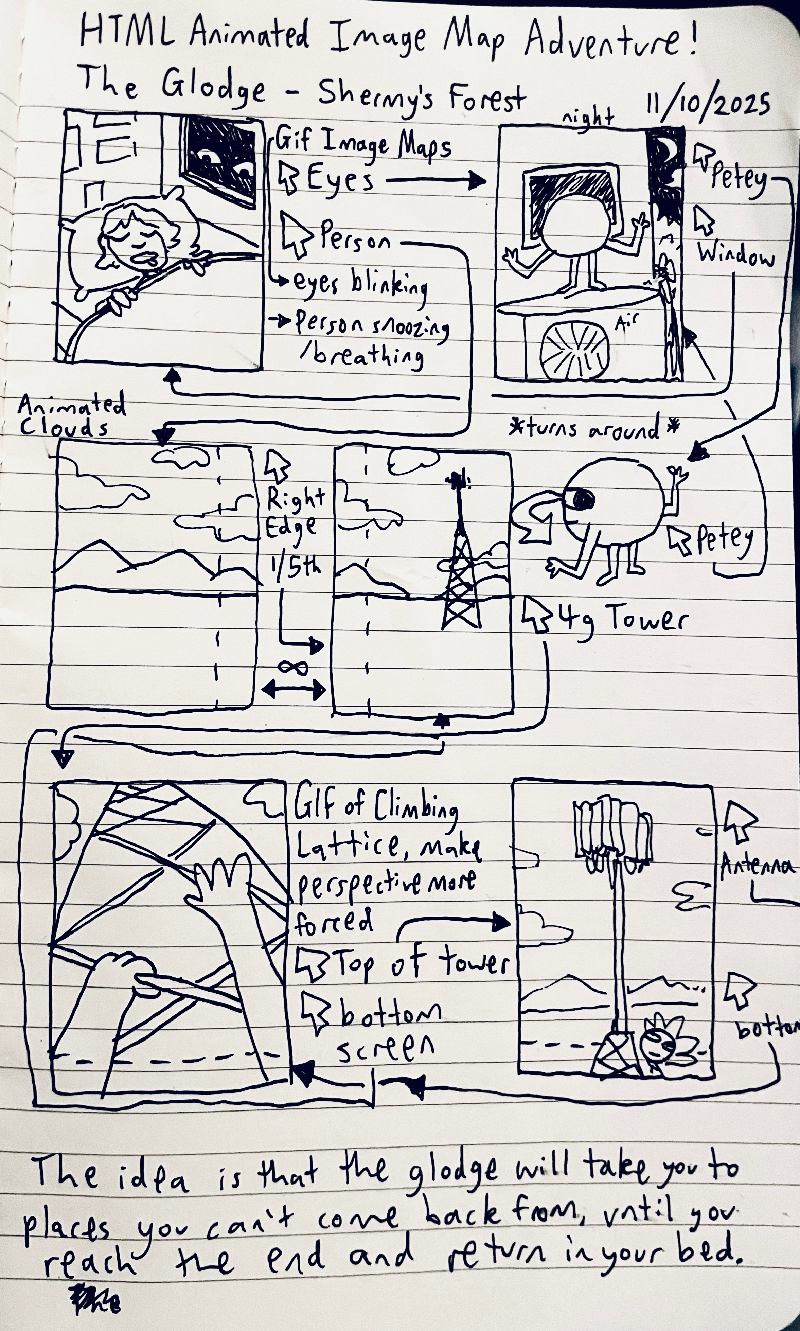 HTML Animated Image Map Adventure!
The Glodge - Shermy's Forest 11/10/2025
Gif Image Maps
Eyes
Person
eyes blinking
Person snoozing
/breathing
night
Petey
Window
Air
Animated
Clouds
Right
Edge
1/5th
∞
*turns around*
Petey
4g Tower
GIF of Climbing
Lattice, make
perspective more
forced
Top of tower
bottom
screen
Antenna
bottom
The idea is that the glodge will take you to
places you can't come back from, until you
reach the end and return in your bed.